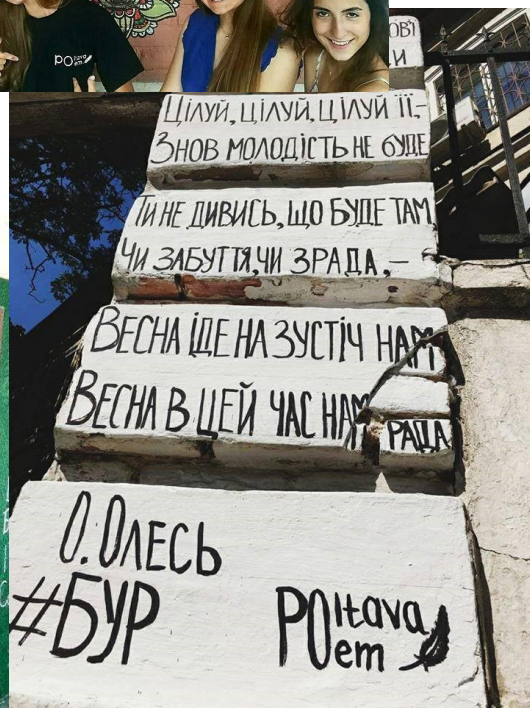 POltava
em
Цілуй, цілуй, цілуй її,-
Знов молодість не буде
Ти не дивись, що буде там,
Чи забуття, чи зрада,-
Весна іде на зустіч нам
Весна в цей час нам рада
О. Олесь
#БУР
POltava
em